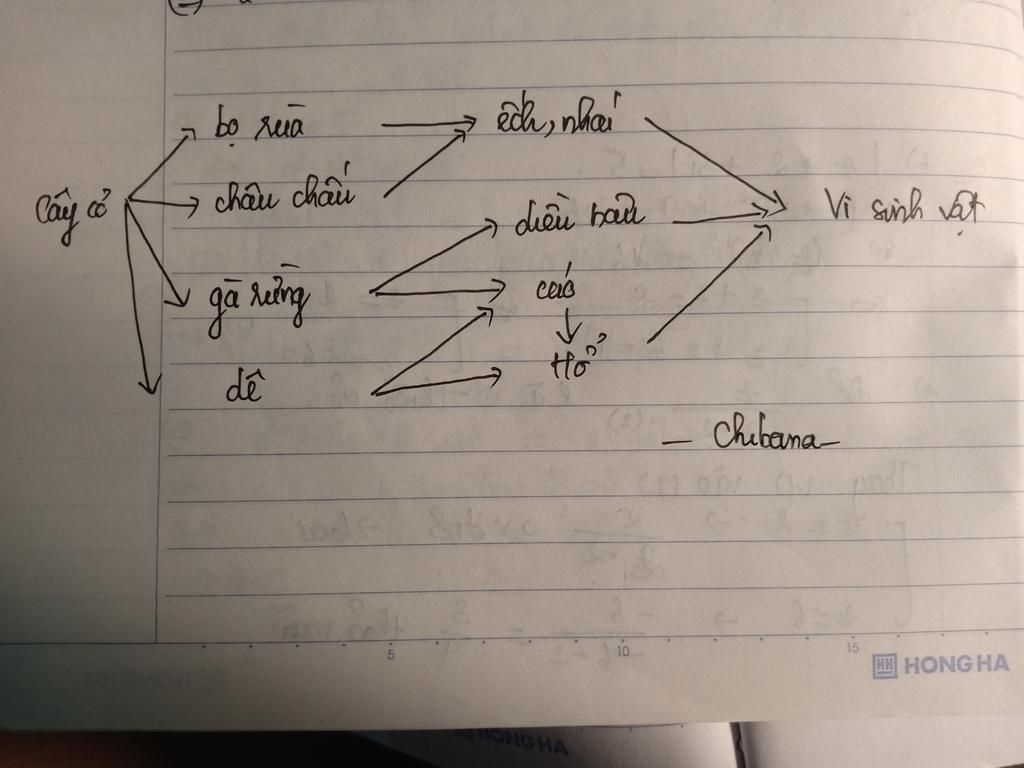 bọ rùa ếch, nhái
Cây cỏ châu chấu diều hâu Vi sinh vật
gà rừng cáo
dê Hổ
— Chibana —
5 10 15
HH HONG HA
HONG HA